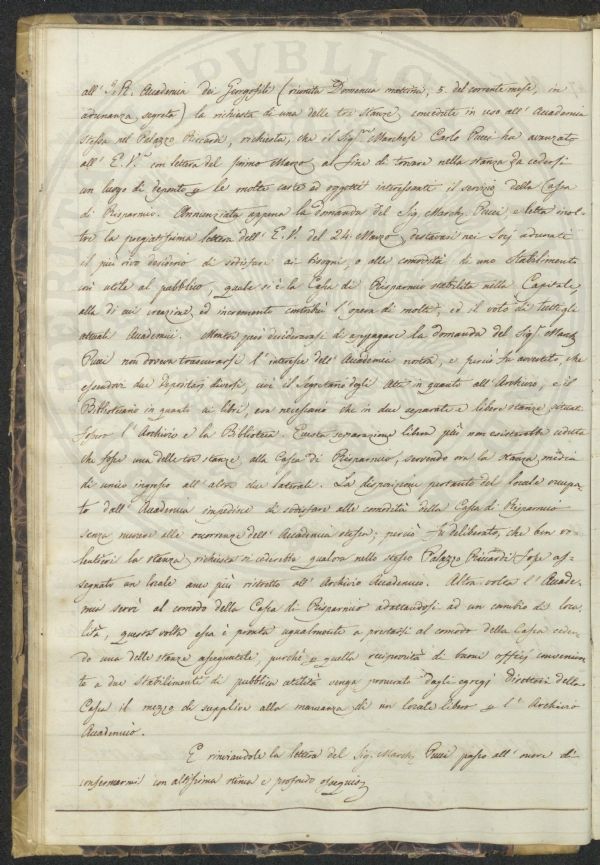 all' I. R. Accademia dei Georgofili (riunita Domenica mattina, 5. del corrente mese, in
adunanza segreta) la richiesta di una delle tre stanze concedute in uso all' Accademia
stessa nel Palazzo Riccardi, richiesta, che il Sig.re Marchese Carlo Pucci ha avanzato
all' E. V.ra con lettera del primo Marzo al fine di tenere nella stanza da cedersi
un luogo di deposito p le molte carte ed oggetti interessanti il servizio della Cassa
di Risparmio. Annunziata appena la domanda del Sig. March. Pucci e letta inol-
tre la pregiatissima lettera dell' E. V. del 24. Marzo destavasi nei Socj adunati
il più vivo desiderio di sodisfare ai bisogni, o alle comodità di uno Stabilimento
così utile al pubblico, quale si è la Cassa di Risparmio stabilita nella Capitale,
alla di cui creazione, ed incremento contribuì l' opera di molti, ed il voto di tutti gli
attuali Accademici. Mentre però desideravasi di appagare la domanda del Sig.e March.
Pucci non doveva trascurarsi l' interesse dell' Accademia nostra, e perciò fu avvertito, che
essendovi due depositarj diversi, cioè il Segretario degli Atti in quanto all' Archivio, e il
Bibliotecario in quanto ai libri, era necessario che in due separate e libere stanze situati
fossero l' Archivio e la Biblioteca. Questa separazione libera più non esisterebbe ceduta
che fosse una delle tre stanze alla Cassa di Risparmio, servendo ora la stanza media
di unico ingresso all' altre due laterali. La disposizione pertanto del locale occupa-
to dall' Accademia impedisce di sodisfare alle comodità della Cassa di Risparmio
senza nuocere alle occorrenze dell' Accademia stessa; perciò fu deliberato, che ben vo-
lentieri la stanza richiesta si cederebbe qualora nello stesso Palazzo Riccardi fosse as-
segnato un locale anco più ristretto all' Archivio Accademico. Altra volta l' Accade-
mia servì al comodo della Cassa di Risparmio adattandosi ad un cambio di loca-
lità, questa volta essa è pronta ugualmente a prestarsi al comodo della Cassa ceden-
do una delle stanze assegnatele, purchè p quella reciprocità di buoni officj convenien-
te a due Stabilimenti di pubblica utilità venga procurato dagli egregj Direttori della
Cassa il mezzo di supplire alla mancanza di un locale libero p l' Archivio
Accademico.
E rinviandole la lettera del Sig. March. Pucci passo all' onore di
confermarmi con altissima stima e profondo ossequio